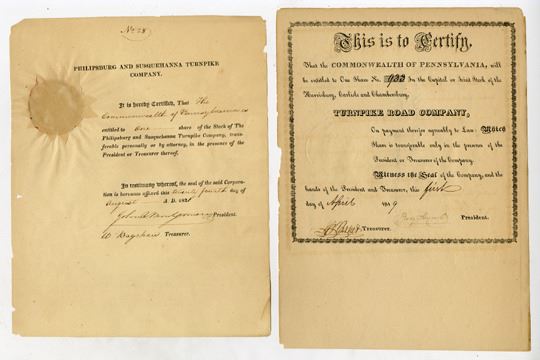 No 28
PHILIPSBURG AND SUSQUEHANNA TURNPIKE
COMPANY.
It is hereby Certified, That The
Commonwealth of Pennsylvania is
entitled to One share of the Stock of The
Philipsburg and Susquehanna Turnpike Company, trans-
ferable personally or by attorney, in the presence of the
President or Treasurer thereof.
In testimony whereof, the seal of the said Corpora-
tion is hereunto affixed this twenty fourth day of
August A. D. 182
President.
W Bagshaw Treasurer.
This is to Certify,
That the COMMONWEALTH OF PENNSYLVANIA, will
be entitled to One Share No. 933 In the Capital or Joint Stock of the
Harrisburg, Carlisle and Chambersburg,
TURNPIKE ROAD COMPANY,
On payment therefor agreeably to Law: Which
Share is transferable only in the presence of the
President or Treasurer of the Company.
Witness the Seal of the Company, and the
hands of the President and Treasurer, this first
day of April 1819
President.
Treasurer.